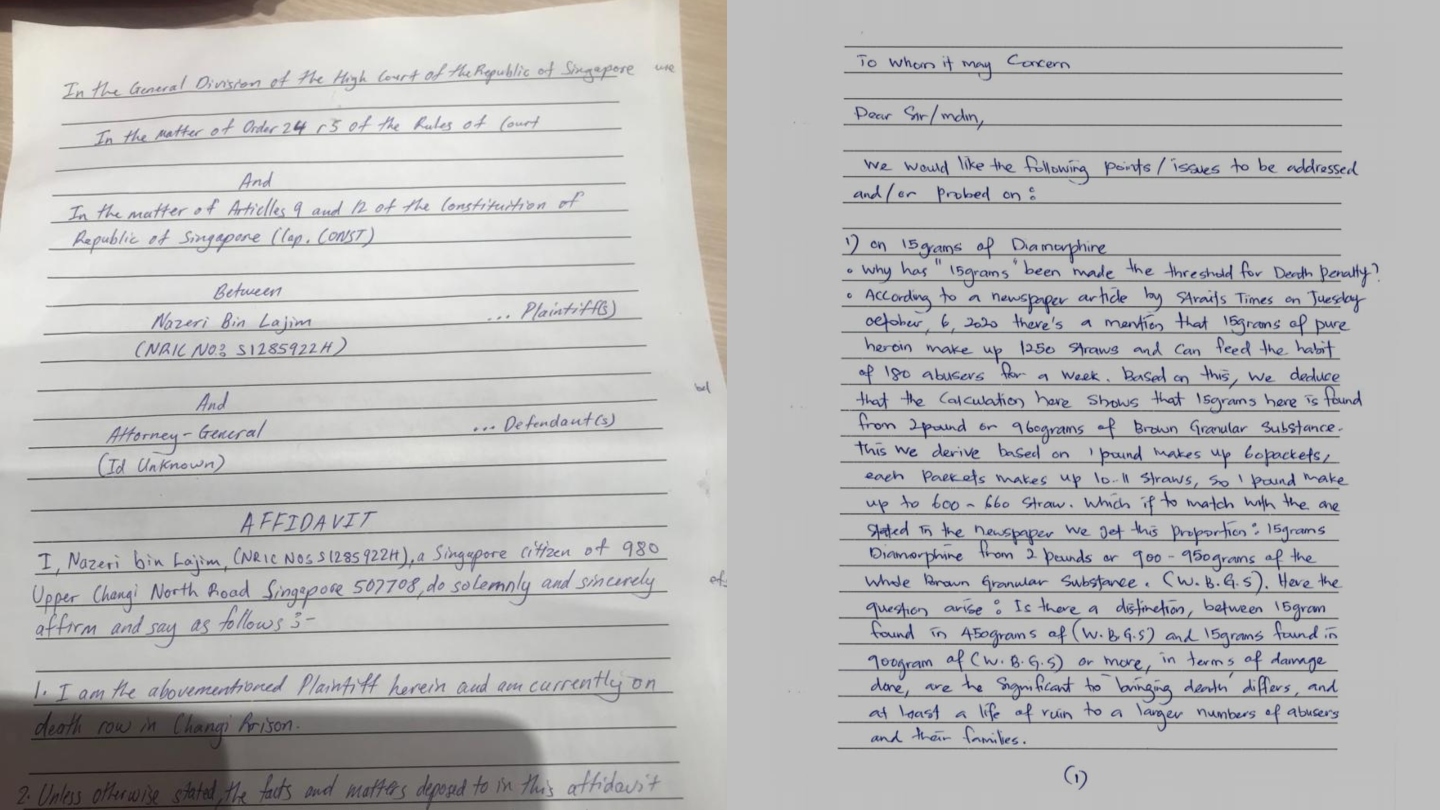 In the General Division of the High Court of the Republic of Singapore
In the matter of Order 24 r5 of the Rules of Court
And
In the matter of Articlles 9 and 12 of the Constituition of
Republic of Singapore (Cap. CONST)
Between
Nazeri Bin Lajim ... Plaintiff(s)
(NRIC NO: S1285922H)
And
Attorney-General ... Defendant(s)
(Id Unknown)
AFFIDAVIT
I, Nazeri bin Lajim, (NRIC NO: S1285922H), a Singapore citizen of 980
Upper Changi North Road Singapore 507708, do solemnly and sincerely
affirm and say as follows :-
1. I am the abovementioned Plaintiff herein and am currently on
death row in Changi Prison.
2. Unless otherwise stated, the facts and matters deposed to in this affidavit
To whom it may Concern
Dear Sir/mdm,
We would like the following points / issues to be addressed
and/or probed on :
1) on 15grams of Diamorphine
• Why has "15grams" been made the threshold for Death Penalty?
• According to a newspaper article by Straits Times on Tuesday
october, 6, 2020 there's a mention that 15grams of pure
heroin make up 1250 straws and can feed the habit
of 180 abusers for a week. Based on this, we deduce
that the calculation here shows that 15grams here is found
from 2pound or 960grams of Brown Granular Substance.
this we derive based on 1 pound makes up 60packets,
each Packets makes up 10-11 straws, so 1 pound make
up to 600 - 660 straw. Which if to match with the one
stated in the newspaper we get this proportion : 15grams
Diamorphine from 2 pounds or 900 - 950grams of the
whole Brown Granular Substance. (W.B.G.S). Here the
question arise : Is there a distinction, between 15gram
found in 450grams of (W.B.G.S) and 15grams found in
900gram of (W.B.G.S) or more, in terms of damage
done, are the significant to "bringing death" differs, and
at least a life of ruin to a larger numbers of abusers
and their families.
(1)